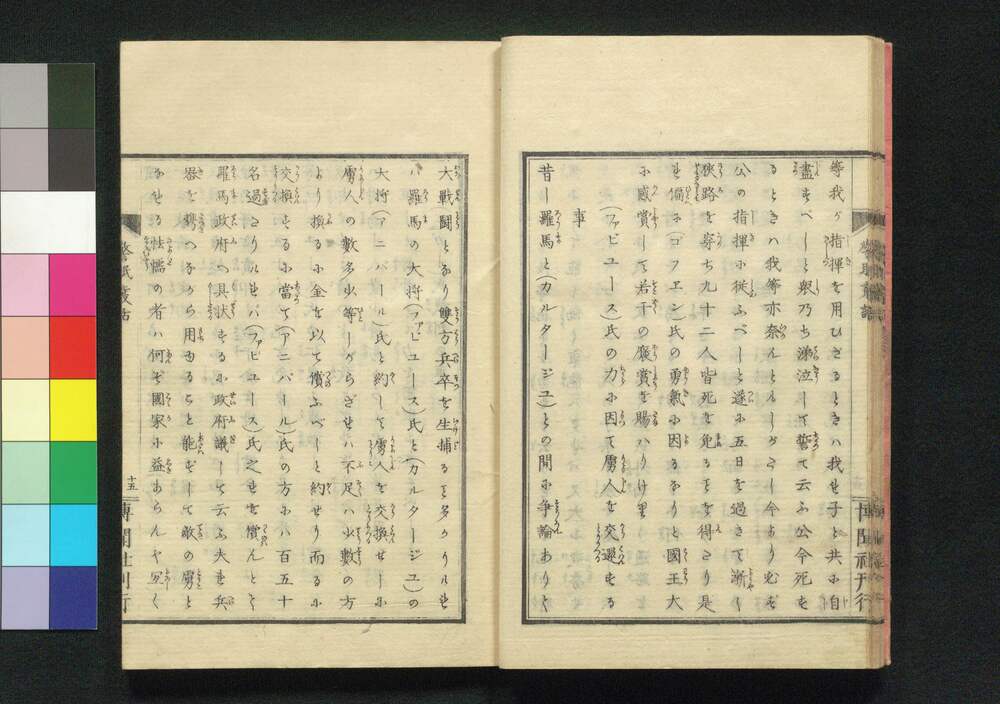 等我ガ指揮を用ひざるときハ我せ子と共に自
盡すべしと輿乃ち涕泣して誓て云ふ公今死を
るときハ我等亦奈んともしがたし今より必ず
公の指揮に從ふべしと遂に五日を過きて漸く
狹路を穿ち九十二人皆死を免るヽを得たり是
(ゴフエン)氏の勇氣に因るなりと國王大
に感賞して若干の襃賞を賜ハりけ里
(ファビユース)氏の力に因て虜人を交還する
事
昔し羅馬と(カルタージユ)との間に争論ありし
博聞社刊行
大戰鬪となり雙方兵卒を生捕るヿ多かりし
ハ羅馬の大將(ファビユース)氏と(カルタージユ)の
大將(アニバール)氏と約して虜人を交換せしに
虜人の數多少等しからざれハ不足ハ少數の方
より換るに金を以て償ふべしと約せり而るに
交換するに當て(アニバール)氏の方にハ百五十
名過たりけれバ(ファビユース)氏之を償んとて
羅馬政府へ具状するに政府議して云ふ夫れ兵
器を携へながら用ゐること能ずして敵の虜と
なれる怯懦の者ハ何ぞ國家に益あらんや
十五
博聞社刊行